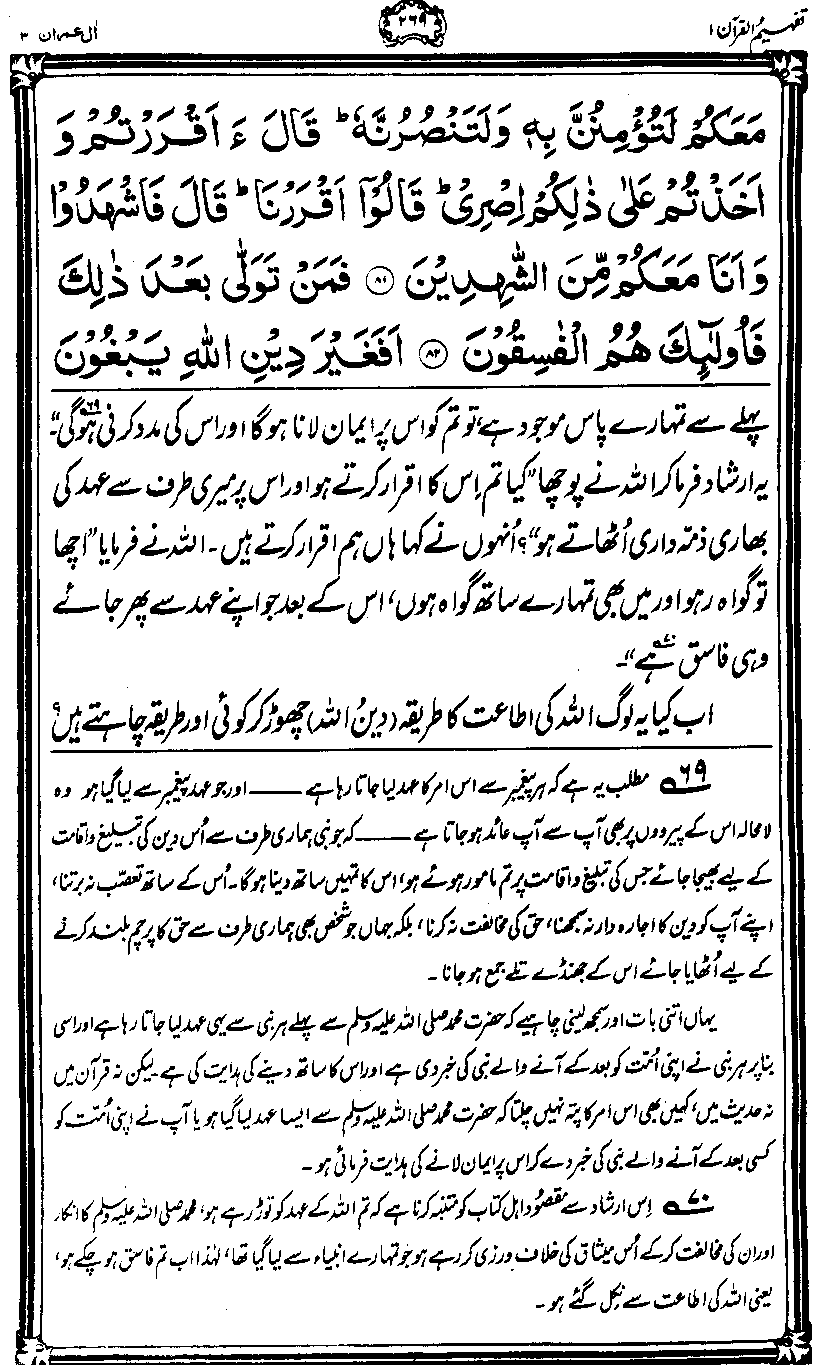 تفہیم القرآن ۱
۲۶۹
اٰل عمران ۳
مَعَكُمْ لَتُؤْمِنُنَّ بِهٖ وَلَتَنْصُرُنَّهٗ ؕ قَالَ ءَ اَقْرَرْتُمْ وَ
اَخَذْتُمْ عَلٰى ذٰلِكُمْ اِصْرِىْ ؕ قَالُوْۤا اَقْرَرْنَا ؕ قَالَ فَاشْهَدُوْا
وَاَنَا مَعَكُمْ مِّنَ الشّٰهِدِيْنَ ﴿۸۱﴾ فَمَنْ تَوَلّٰى بَعْدَ ذٰلِكَ
فَاُولٰٓئِكَ هُمُ الْفٰسِقُوْنَ ﴿۸۲﴾ اَفَغَيْرَ دِيْنِ اللّٰهِ يَبْغُوْنَ
پہلے سے تمہارے پاس موجود ہے، تو تم کو اس پر ایمان لانا ہوگا اور اس کی مدد کرنی ہوگی۶۹"۔
یہ ارشاد فرما کر اللہ نے پوچھا "کیا تم اِس کا اقرار کرتے ہو اور اس پر میری طرف سے عہد کی
بھاری ذمّہ داری اُٹھاتے ہو"؟ اُنہوں نے کہا ہاں ہم اقرار کرتے ہیں۔ اللہ نے فرمایا "اچھا
تو گواہ رہو اور میں بھی تمہارے ساتھ گواہ ہوں، اس کے بعد جو اپنے عہد سے پھر جائے
وہی فاسق ہے۷۰"۔
اب کیا یہ لوگ اللہ کی اطاعت کا طریقہ (دینُ اللہ) چھوڑ کر کوئی اور طریقہ چاہتے ہیں؟
۶۹ مطلب یہ ہے کہ ہر پیغمبر سے اس امر کا عہد لیا جاتا رہا ہے —— اور جو عہد پیغمبر سے لیا گیا ہو وہ
لامحالہ اس کے پیرووں پر بھی آپ سے آپ عائد ہو جاتا ہے —— کہ جو نبی ہماری طرف سے اُس دین کی تبلیغ و اقامت
کے لیے بھیجا جائے جس کی تبلیغ و اقامت پر تم مامور ہوئے ہو، اس کا تمہیں ساتھ دینا ہوگا۔ اُس کے ساتھ تعصّب نہ برتنا،
اپنے آپ کو دین کا اجارہ دار نہ سمجھنا، حق کی مخالفت نہ کرنا، بلکہ جہاں جو شخص بھی ہماری طرف سے حق کا پرچم بلند کرنے
کے لیے اُٹھایا جائے اس کے جھنڈے تلے جمع ہو جانا۔
یہاں اتنی بات اور سمجھ لینی چاہیے کہ حضرت محمد صلی اللہ علیہ وسلم سے پہلے ہر نبی سے یہی عہد لیا جاتا رہا ہے اور اسی
بنا پر ہر نبی نے اپنی اُمّت کو بعد کے آنے والے نبی کی خبر دی ہے اور اس کا ساتھ دینے کی ہدایت کی ہے۔ لیکن نہ قرآن میں
نہ حدیث میں، کہیں بھی اس امر کا پتہ نہیں چلتا کہ حضرت محمد صلی اللہ علیہ وسلم سے ایسا عہد لیا گیا ہو یا آپ نے اپنی اُمّت کو
کسی بعد کے آنے والے نبی کی خبر دے کر اس پر ایمان لانے کی ہدایت فرمائی ہو۔
۷۰ اِس ارشاد سے مقصُود اہل کتاب کو متنبّہ کرنا ہے کہ تم اللہ کے عہد کو توڑ رہے ہو، محمد صلی اللہ علیہ وسلم کا انکار
اور ان کی مخالفت کر کے اُس میثاق کی خلاف ورزی کر رہے ہو جو تمہارے انبیاء سے لیا گیا تھا، لہٰذا اب تم فاسق ہو چکے ہو،
یعنی اللہ کی اطاعت سے نِکل گئے ہو۔